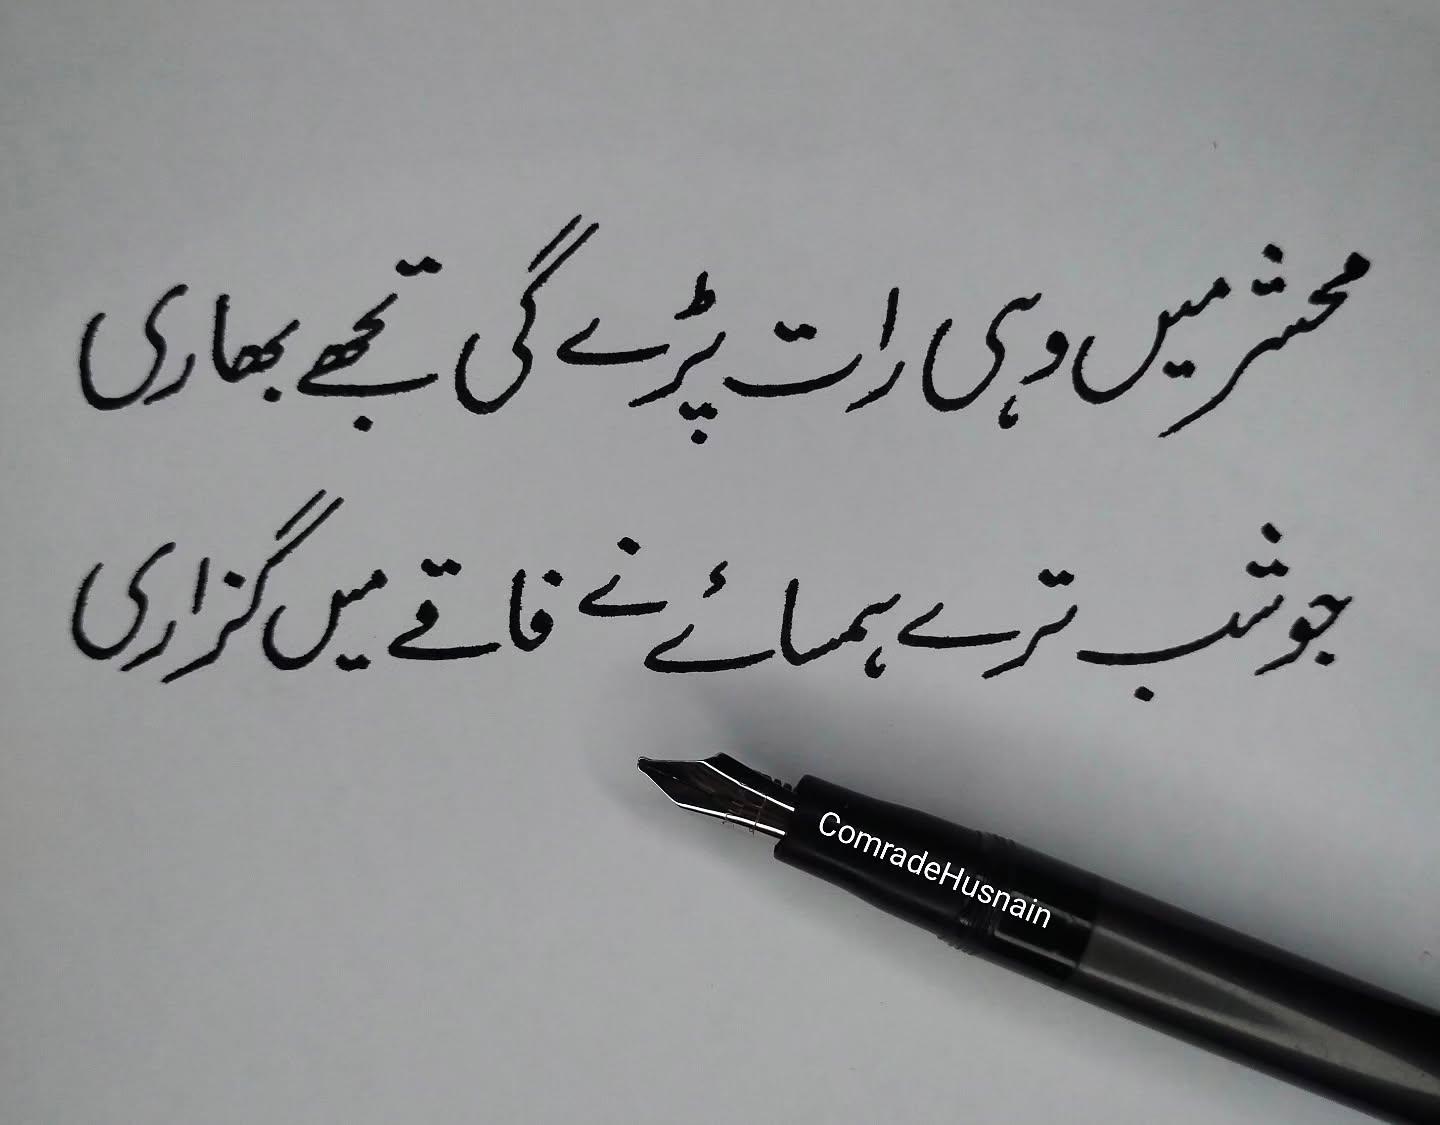 محشر میں وہی رات پڑے گی تجھے بھاری
جو شب ترے ہمسائے نے فاقے میں گزاری
ComradeHusnain